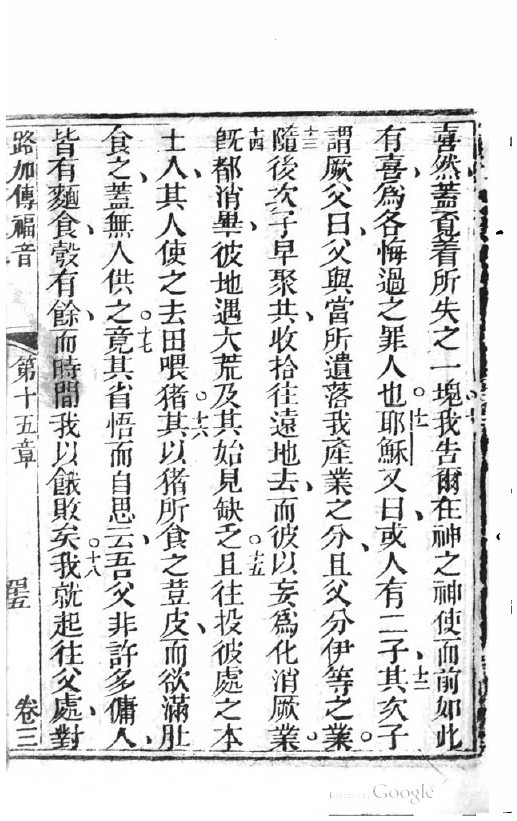 喜然蓋覔着所失之一塊我告爾在神之神使而前如此
有喜、爲各悔過之罪人也。十一耶穌又曰、或人有二子、十二其次子
謂厥父曰、父與當所遺落我產業之分、且父分伊等之業。
十三隨後次子早聚共、收拾往遠地去、而彼以妄爲化消厥業。
十四旣都消畢、彼地遇大荒及其始見缺乏。十五且往投彼處之本
土人、其人使之去田喂猪。十六其以猪所食之荳皮、而欲滿肚
食之、蓋無人供之。十七竟其省悟而自思云、吾父非許多傭人、
皆有麵食、彀有餘、而時間我以餓敗矣。十八我就起往父處、對
路加傳福音 第十五章 四五 卷三
Digitized by Google